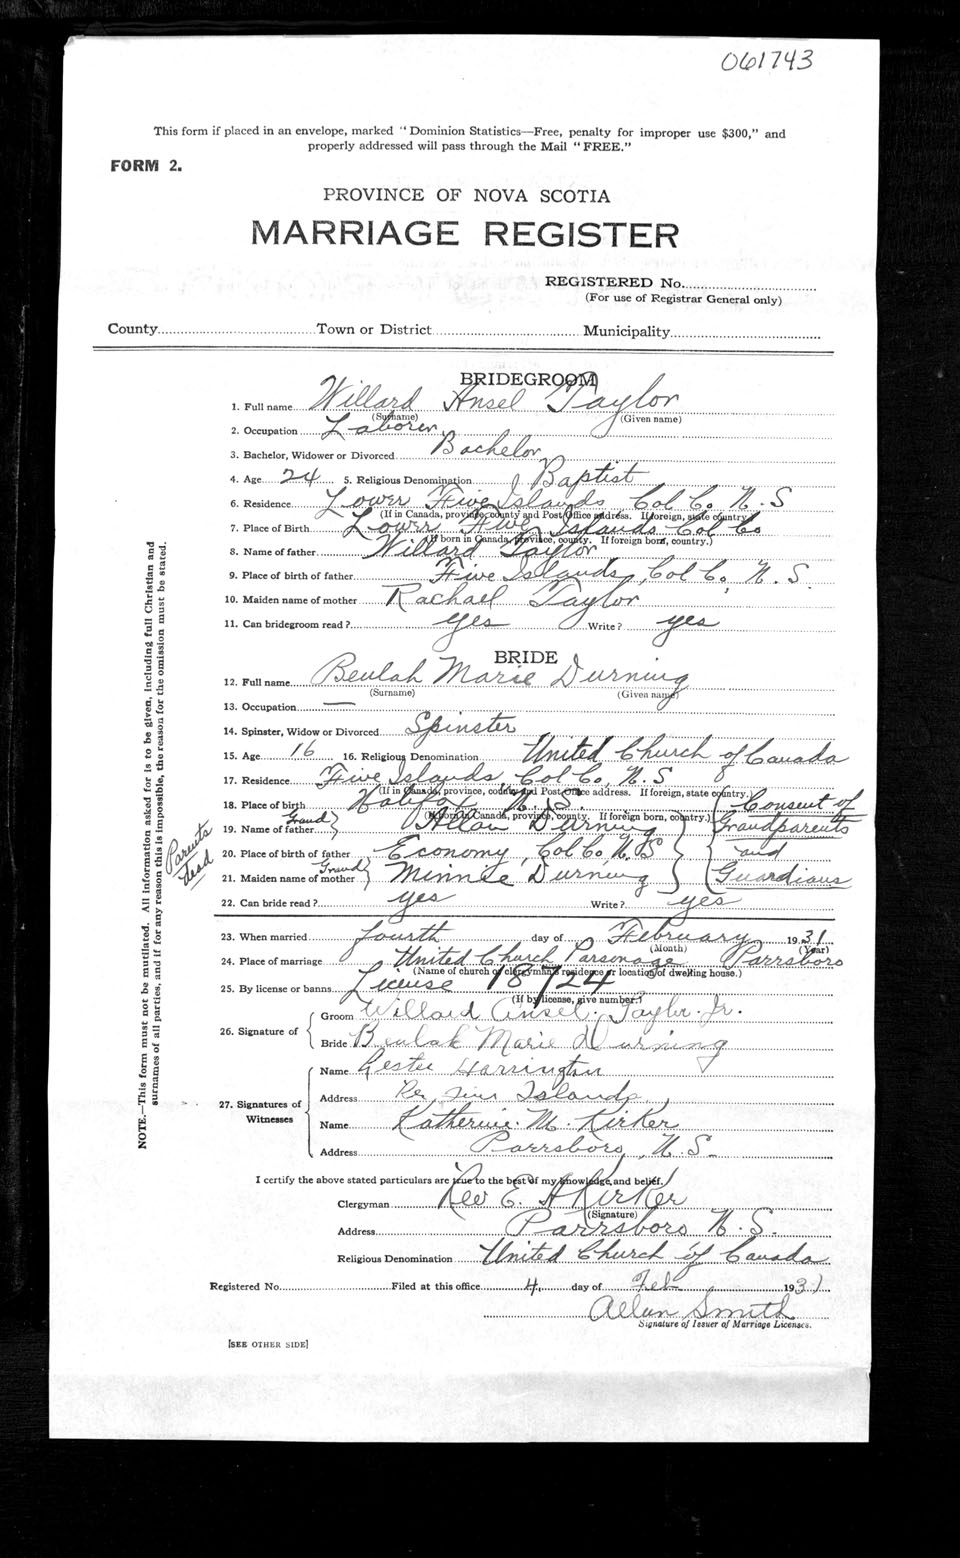 061743
This form if placed in an envelope, marked "Dominion Statistics—Free, penalty for improper use $300," and
properly addressed will pass through the Mail "FREE."
FORM 2.
PROVINCE OF NOVA SCOTIA
MARRIAGE REGISTER
REGISTERED No.
(For use of Registrar General only)
County Town or District Municipality
BRIDEGROOM
1. Full name Willard Ansel Taylor
(Surname) (Given name)
2. Occupation Laborer
3. Bachelor, Widower or Divorced Bachelor
4. Age 24 5. Religious Denomination Baptist
6. Residence Lower Five Islands Col Co. N.S
(If in Canada, province, county and Post Office address. If foreign, state country.)
7. Place of Birth Lower Five Islands Col Co
(If born in Canada, province, county. If foreign born, country.)
8. Name of father Willard Taylor
9. Place of birth of father Five Islands, Col Co, N.S.
10. Maiden name of mother Rachael Taylor
11. Can bridegroom read? yes Write? yes
BRIDE
12. Full name Beulah Marie Durning
(Surname) (Given name)
13. Occupation —
14. Spinster, Widow or Divorced Spinster
15. Age 16 16. Religious Denomination United Church of Canada
17. Residence Five Islands, Col Co, N.S
(If in Canada, province, county and Post Office address. If foreign, state country.)
18. Place of birth Halifax N.S.
(If born in Canada, province, county. If foreign born, country.)
Consent of
Grand
19. Name of father Allan Durning
Grandparents
20. Place of birth of father Economy, Col Co N.S
and
Grand
21. Maiden name of mother Minnie Durning
Guardians
Parents
dead
22. Can bride read? yes Write? yes
23. When married fourth day of February 1931
(Month) (Year)
24. Place of marriage United Church Parsonage Parrsboro
(Name of church or clergyman's residence or location of dwelling house.)
25. By license or banns License 18724
(If by license, give number.)
26. Signature of
Groom Willard Ansel Taylor Jr.
Bride Beulah Marie Durning
27. Signatures of
Witnesses
Name Lester Harrington
Address Five Islands
Name Katherine M. Kirker
Address Parrsboro, N.S.
I certify the above stated particulars are true to the best of my knowledge and belief.
Clergyman Rev E. A Kirker
(Signature)
Address Parrsboro N.S.
Religious Denomination United Church of Canada
Registered No. Filed at this office 4 day of Feb 1931
Allan Smith
Signature of Issuer of Marriage Licenses.
[SEE OTHER SIDE]
NOTE.—This form must not be mutilated. All information asked for is to be given, including full Christian and
surnames of all parties, and if for any reason this is impossible, the reason for the omission must be stated.